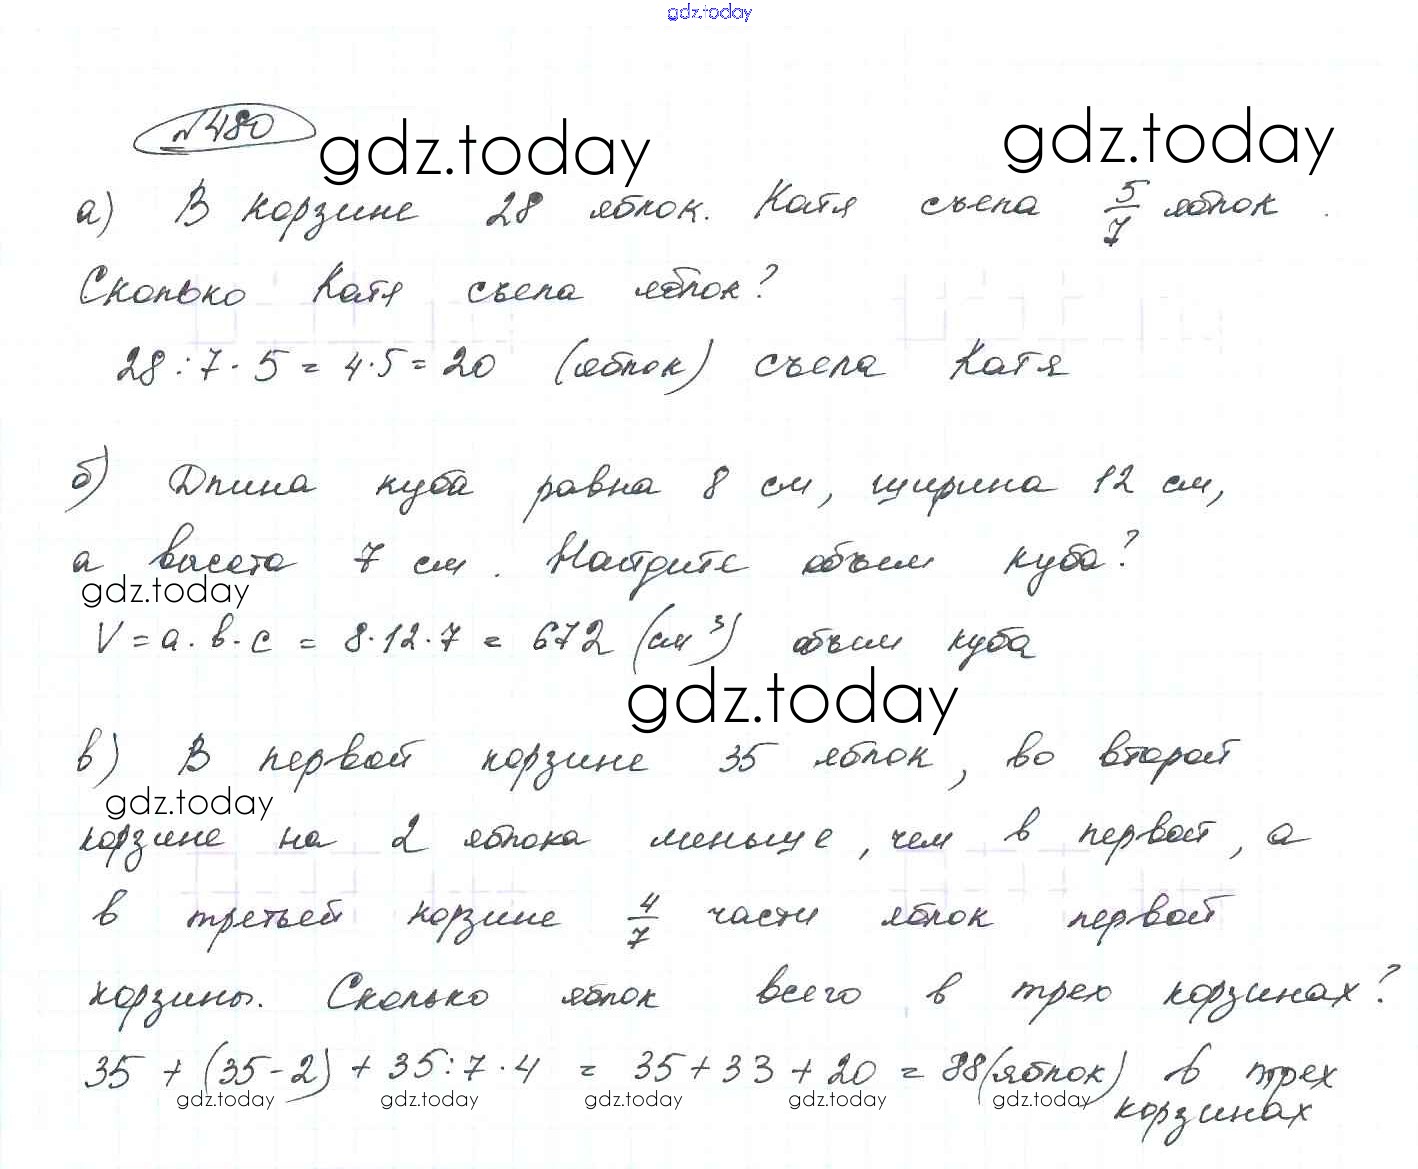 gdz.today
№480
gdz.today
gdz.today
а) В корзине 28 яблок. Катя съела 5/7 яблок.
Сколько Катя съела яблок?
28:7·5=4·5=20 (яблок) съела Катя
б) Длина куба равна 8 см, ширина 12 см,
а высота 7 см. Найдите объем куба?
gdz.today
V=a·b·c = 8·12·7 = 672 (см³) объем куба
gdz.today
в) В первой корзине 35 яблок, во второй
gdz.today
корзине на 2 яблока меньше, чем в первой, а
в третьей корзине 4/7 части яблок первой
корзины. Сколько яблок всего в трех корзинах?
35 + (35-2) + 35:7·4 = 35+33+20 = 88(яблок) в трех
gdz.today gdz.today gdz.today gdz.today gdz.today
корзинах